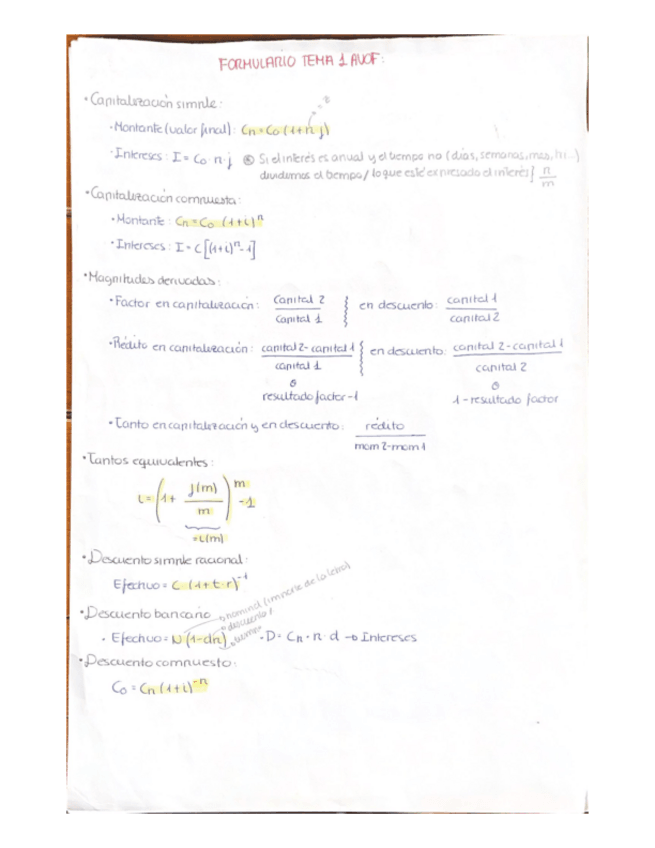 FORMULARIO TEMA 1 AVOF:
• Capitalización simple:
• Montante (valor final): Cn = Co (1+n·j)
• Intereses: I = Co · n · j ⊛ Si el interés es anual y el tiempo no (días, semanas, mes, tri...)
dividimos el tiempo / lo que esté expresado el interés] n/m
• Capitalización compuesta:
• Montante: Cn = Co · (1+i)^n
• Intereses: I = C [(1+i)^n - 1]
• Magnitudes derivadas:
• Factor en capitalización: capital 2 / capital 1 } en descuento: capital 1 / capital 2
• Rédito en capitalización: capital 2 - capital 1 / capital 1 } en descuento: capital 2 - capital 1 / capital 2
o o
resultado factor - 1 1 - resultado factor
• Tanto en capitalización y en descuento: rédito / mom 2 - mom 1
• Tantos equivalentes:
i = (1 + j(m) / m)^m - 1
= i(m)
• Descuento simple racional:
Efectivo = C · (1+t·r)^-1
• Descuento bancario → nominal (importe de la letra)
→ descuento
• Efectivo = N (1-dn) → tiempo • D = Cn · n · d → Intereses
• Descuento compuesto:
Co = Cn (1+i)^-n